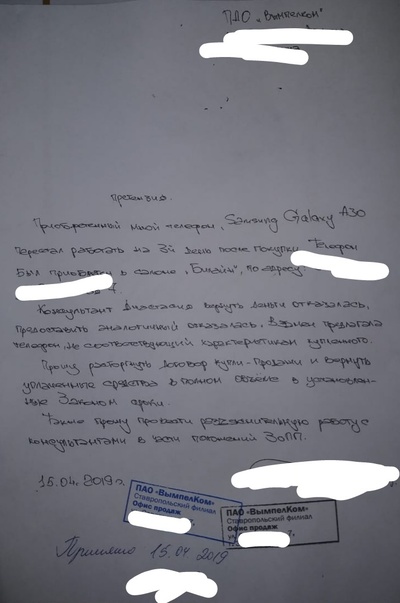 ПАО „Вымпелком"
Претензия.
Приобретённый мной телефон, Samsung Galaxy A30
перестал работать на 3й день после покупки. Телефон
был приобретён в салоне „Билайн", по адресу:
Консультант Анастасия вернуть деньги отказалась,
предоставить аналогичный отказалась, взамен предлагала
телефон, не соответствующий характеристикам купленного.
Прошу расторгнуть договор купли-продажи и вернуть
уплаченные средства в полном объёме в установлен-
ные Законом сроки.
Также прошу провести разъяснительную работу с
консультантами в части положений ЗоПП.
15.04.2019г.
ПАО «ВымпелКом»
Ставропольский филиал
Офис продаж
ПАО «ВымпелКом»
Ставропольский филиал
Офис продаж
Принято 15.04.2019